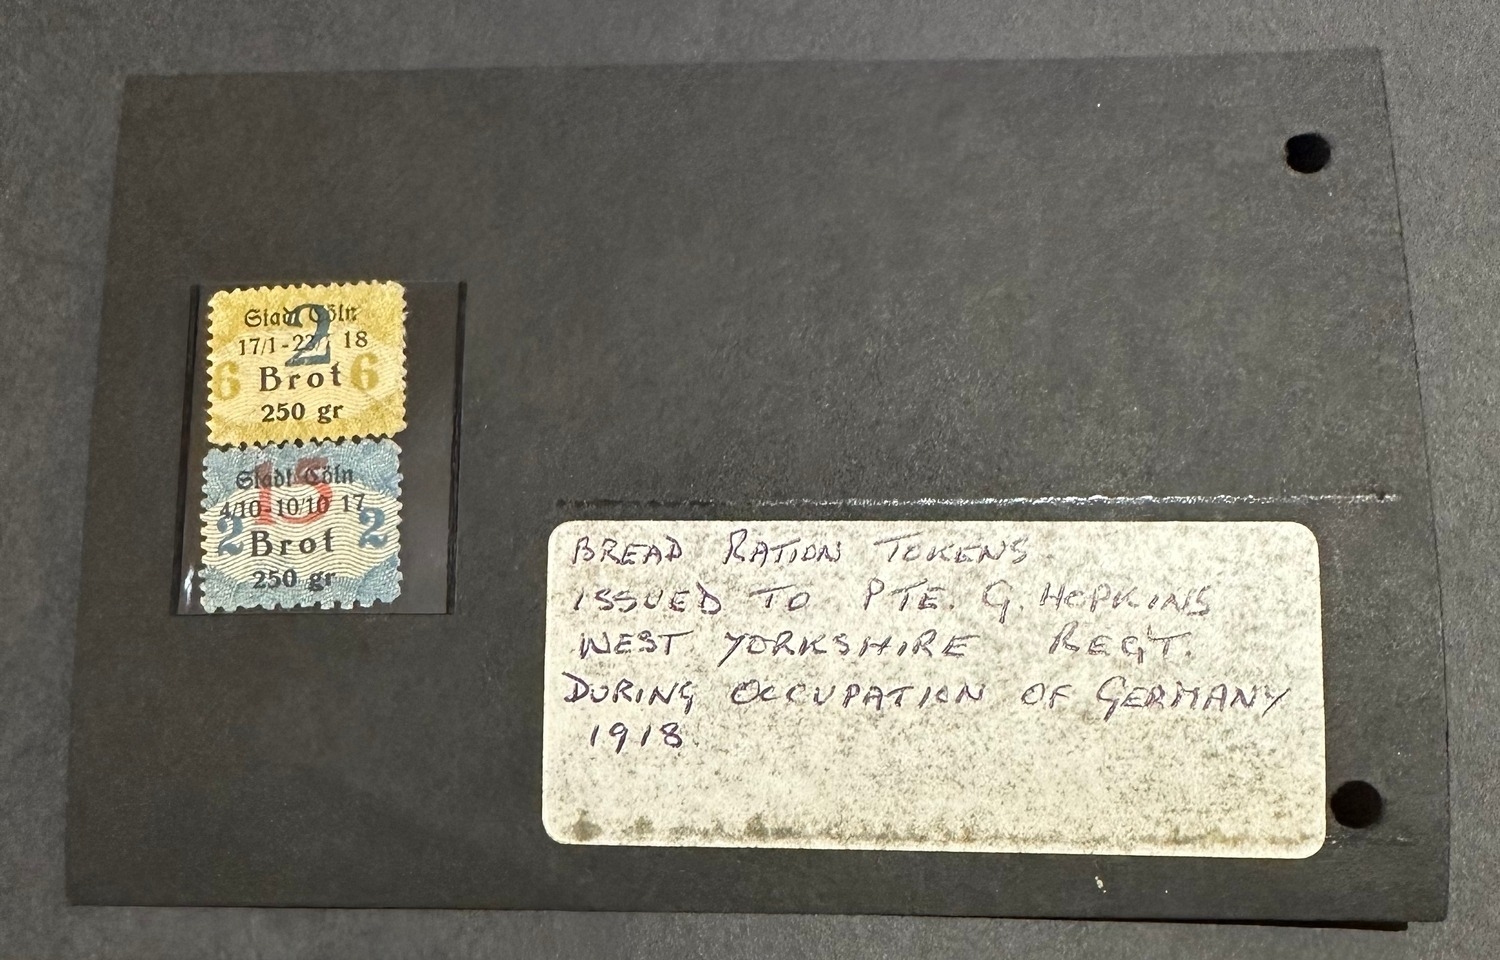 Stadt Cöln
2
17/1-23/1 18
6 Brot 6
250 gr
Stadt Cöln
15
4/10-10/10 17
2 Brot 2
250 gr
BREAD RATION TOKENS
ISSUED TO PTE. G. HOPKINS
WEST YORKSHIRE REGT.
DURING OCCUPATION OF GERMANY
1918.